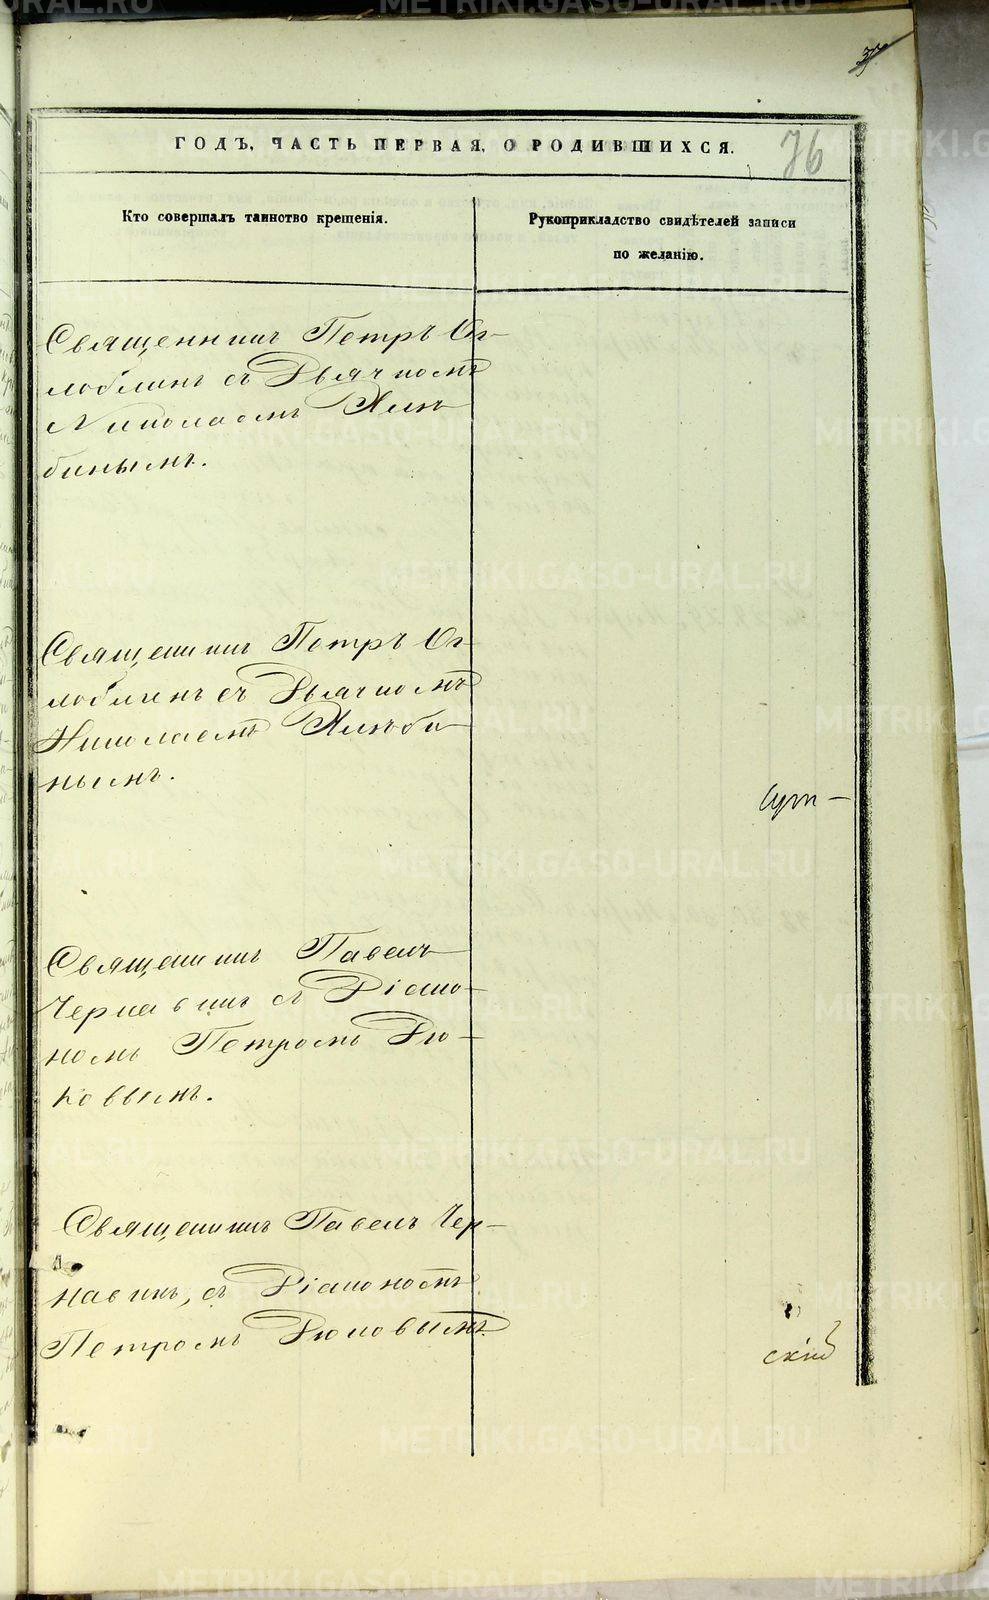 37
76
ГОДЪ, ЧАСТЬ ПЕРВАЯ, О РОДИВШИХСЯ.
Кто совершалъ таинство крещенія.
Рукоприкладство свидѣтелей записи
по желанію.
Священникъ Петръ Ог-
лоблинъ съ Дьячкомъ
Николаемъ
бинымъ.
Священникъ Петръ Ог-
лоблинъ съ Дьячкомъ
Николаемъ
нымъ.
Священникъ Павелъ
Чернавинъ съ Діако-
номъ Петромъ
ковымъ.
Священникъ Павелъ Чер-
навинъ, съ Діакономъ
Петромъ
скій
METRIKI.GASO-URAL.RU